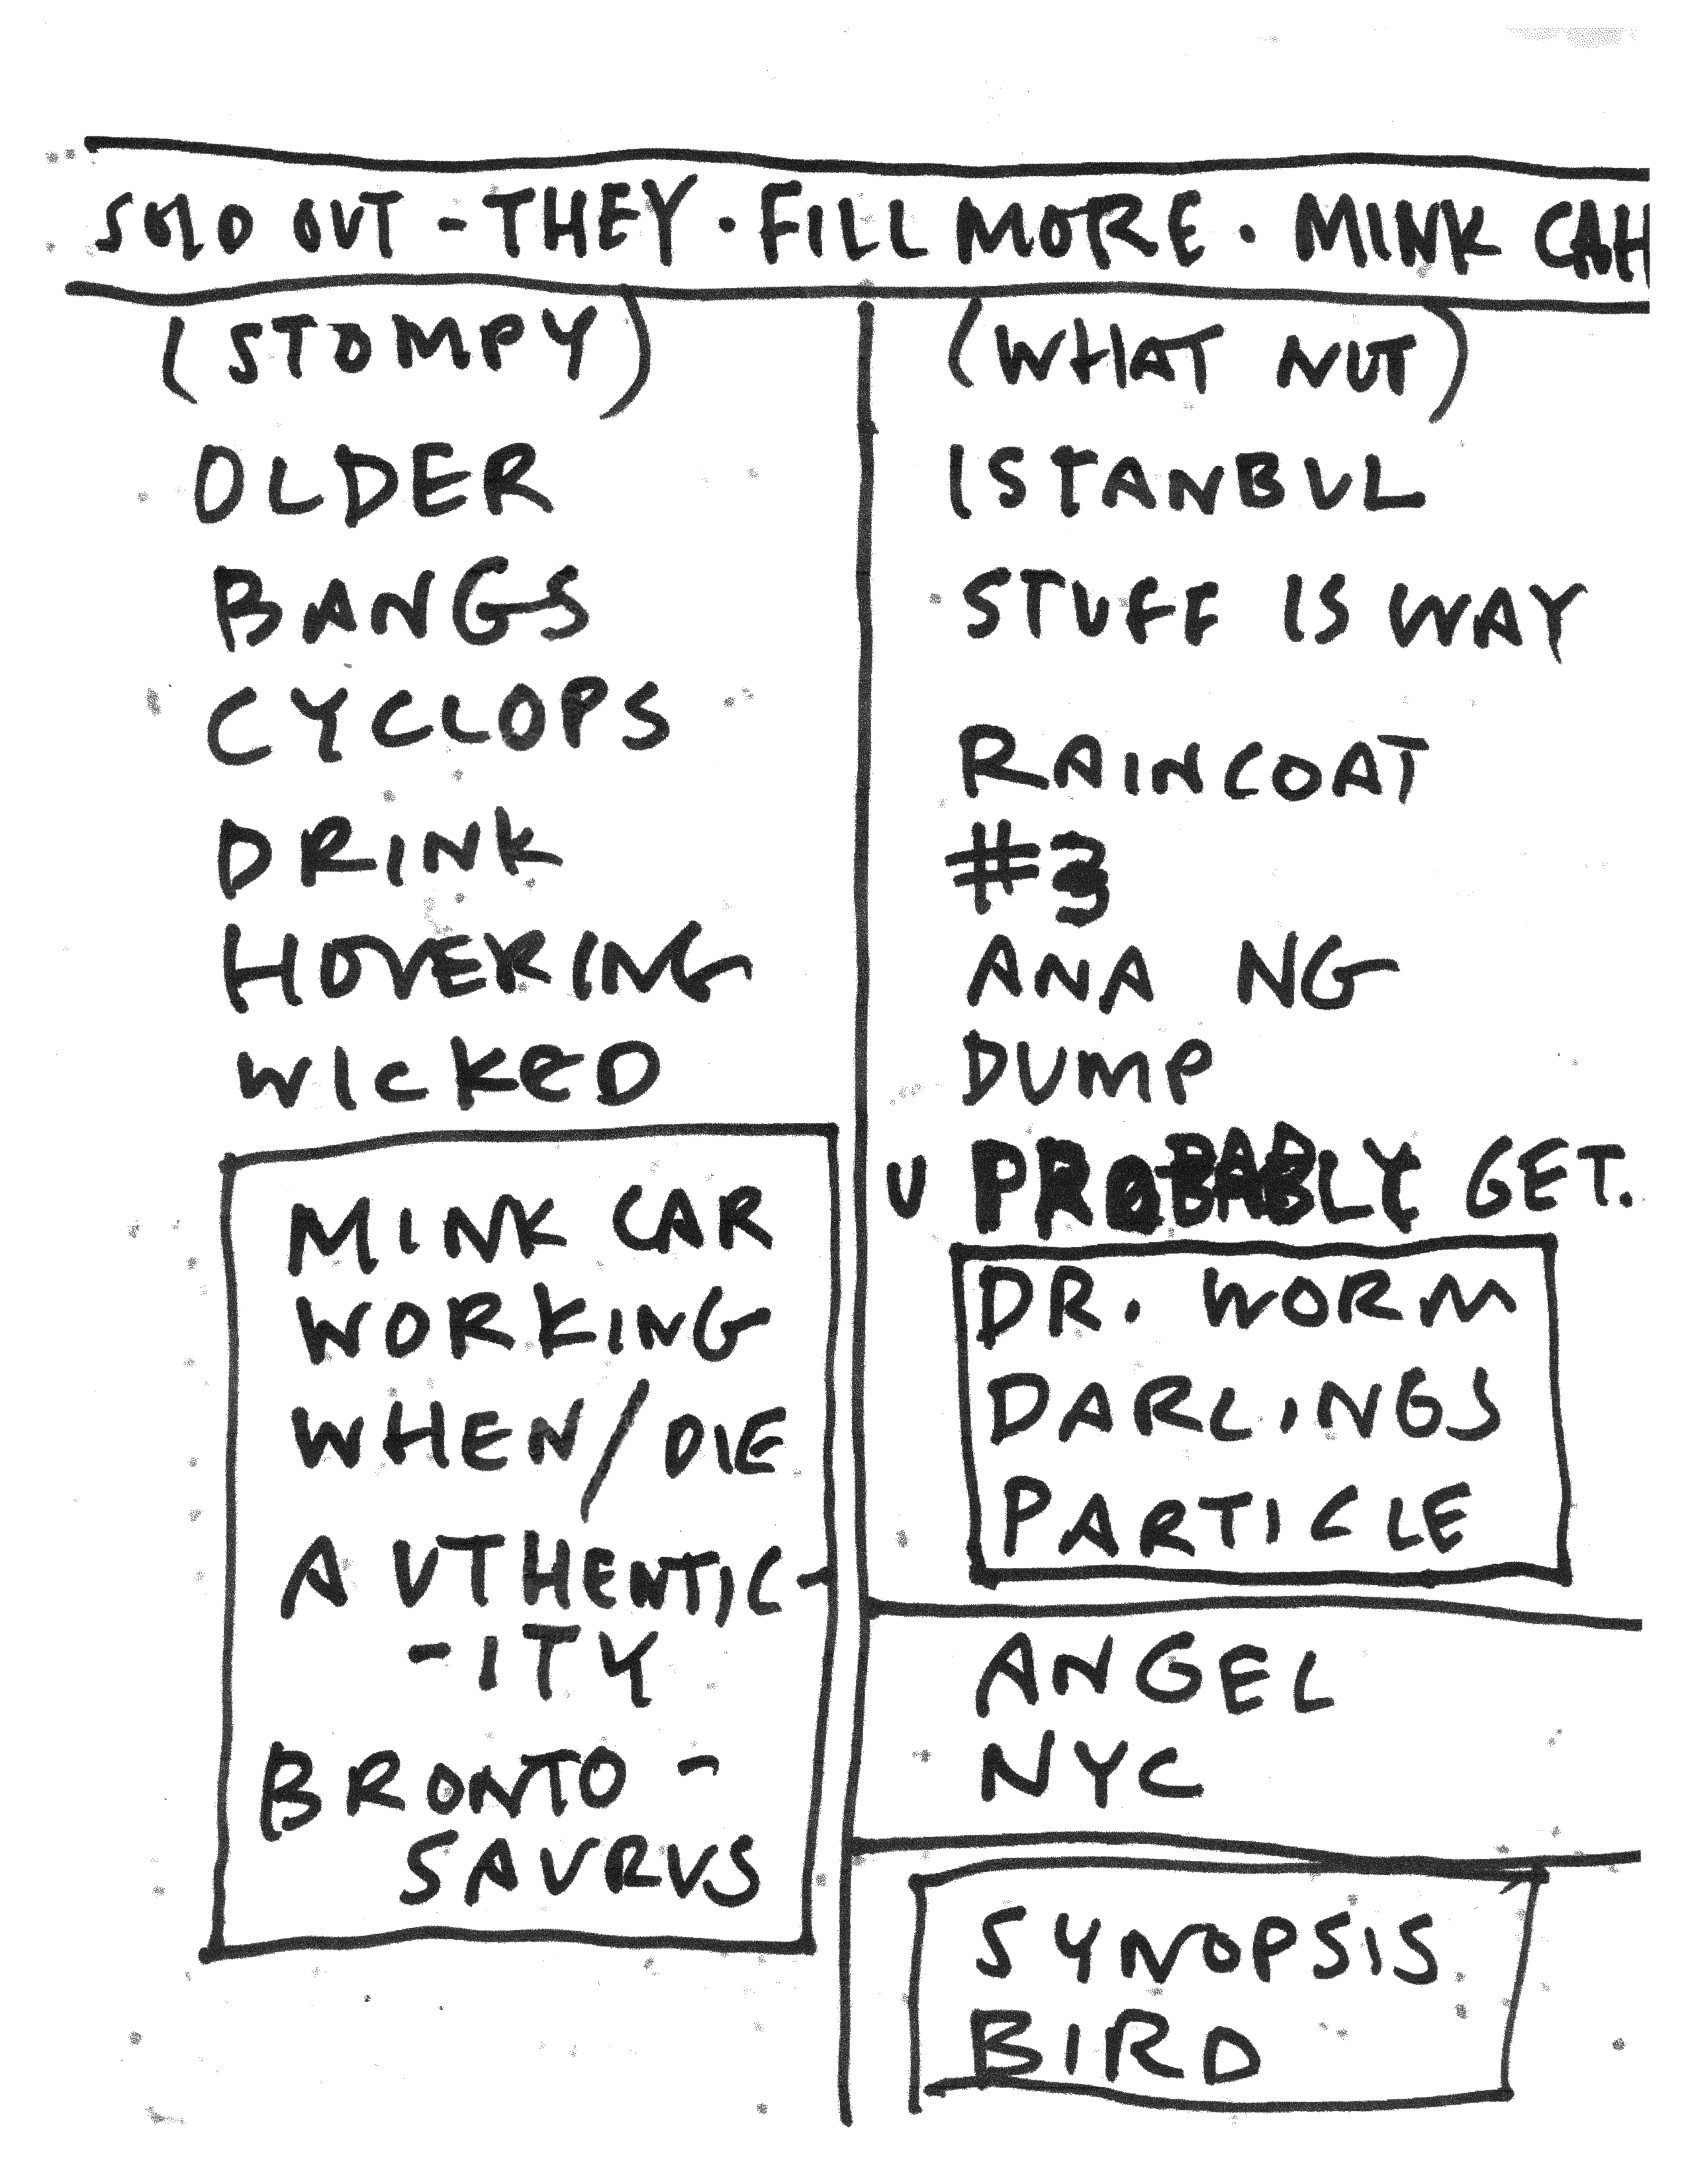 SOLD OUT - THEY · FILLMORE · MINK CAH
(STOMPY)
OLDER
BANGS
CYCLOPS
DRINK
HOVERING
WICKED
MINK CAR
WORKING
WHEN/DIE
AUTHENTIC-
-ITY
BRONTO-
SAURUS
(WHAT NUT)
ISTANBUL
STUFF IS WAY
RAINCOAT
#3
ANA NG
DUMP
U PROBABLY GET.
DR. WORM
DARLINGS
PARTICLE
ANGEL
NYC
SYNOPSIS
BIRD